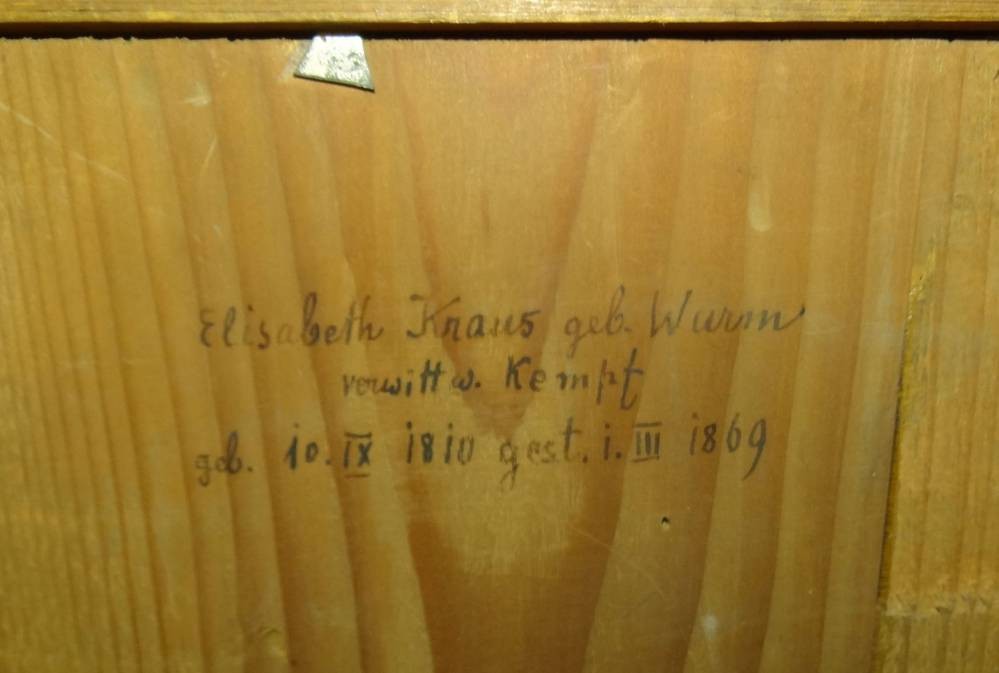 Elisabeth Kraus geb. Wurm
verwittw. Kempf
geb. 10. IX 1810 gest. 1. III 1869